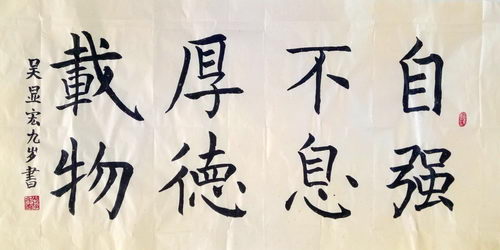 自强
不息
厚德
載物
吴显宏九岁書